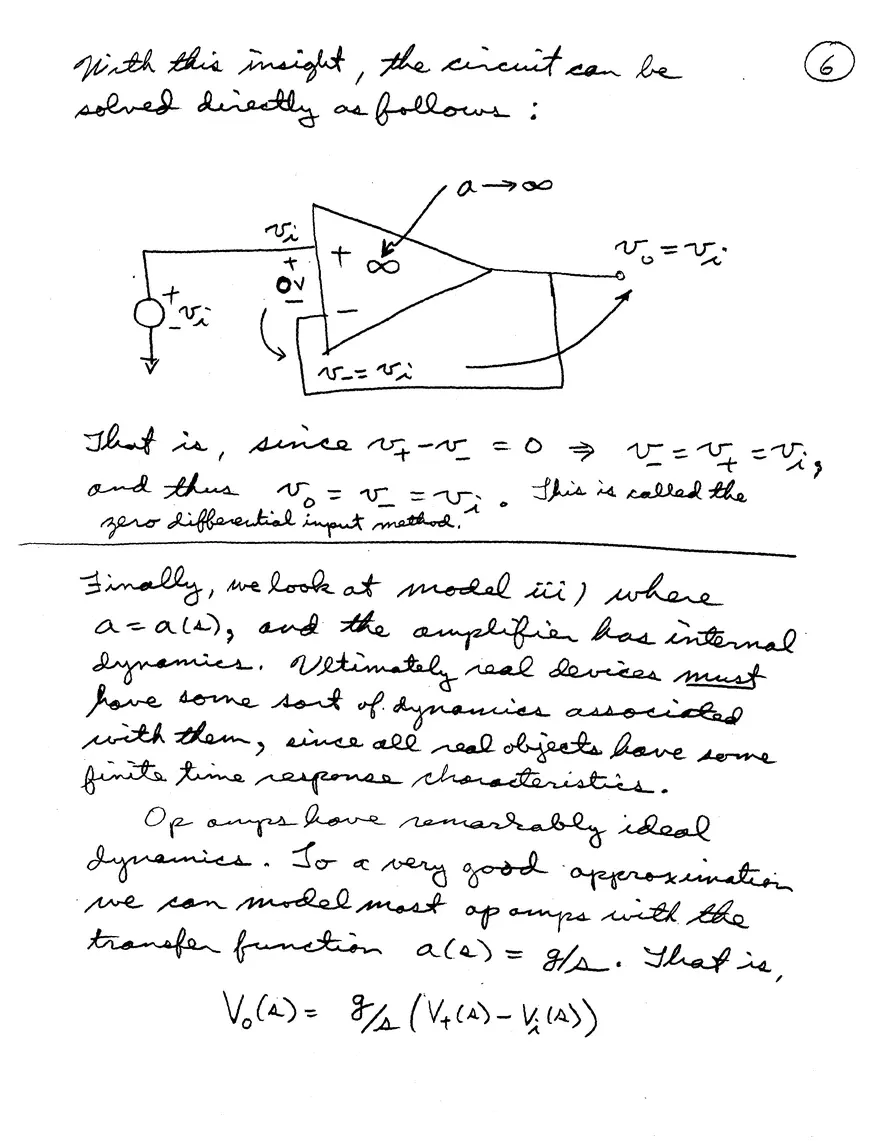 With this insight, the circuit can be
6
solved directly as follows :
a → ∞
v_i
+
∞
v_o = v_i
+
0v
−
+
−
v_i
−
v_- = v_i
That is, since v_+ - v_- = 0 ⇒ v_- = v_+ = v_i,
and thus v_o = v_- = v_i. This is called the
zero differential input method.
Finally, we look at model iii) where
a = a(s), and the amplifier has internal
dynamics. Ultimately real devices must
have some sort of dynamics associated
with them, since all real objects have some
finite time response characteristics.
Op amps have remarkably ideal
dynamics. To a very good approximation
we can model most op amps with the
transfer function a(s) = g/s. That is,
V_o(s) = g/s (V_+(s) - V_i(s))